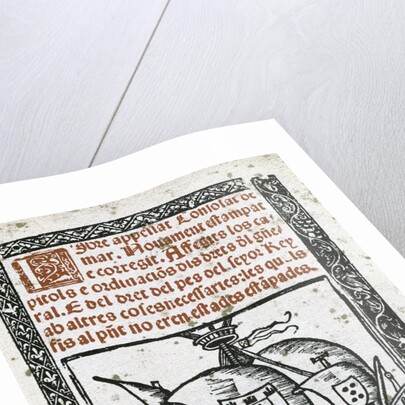 Libre appellat Consolat de
mar. Nouament estampat
e corregit. Affegits los ca,
pitols e ordinacions dels drets del gñe,
ral. E del dret del pes del senyor Rey
ab altres coses necessaries: les quals
fis al pñt no eren estades estāpades.